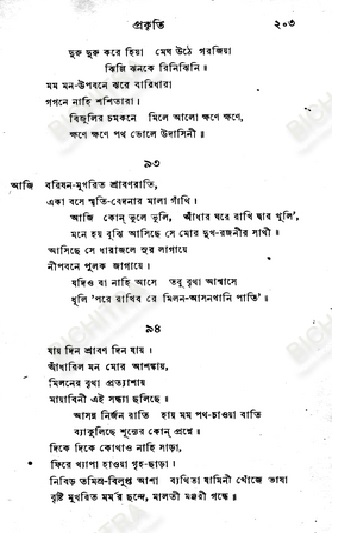 প্রকৃতি ২০৩
দুরু দুরু করে হিয়া মেঘ উঠে গরজিয়া
ঝিল্লি ঝনকে রিনিঝিনি॥
মম মন-উপবনে ঝরে বারিধারা
গগনে নাহি শশিতারা।
বিজুলির চমকনে মিলে আলো ক্ষণে ক্ষণে,
ক্ষণে ক্ষণে পথ ভোলে উদাসিনী॥
৯৩
আজি বরিষন-মুখরিত শ্রাবণরাতি,
একা বসে স্মৃতি-বেদনার মালা গাঁথি।
আজি কোন্ ভুলে ভুলি, আঁধার ঘরে রাখি দ্বার খুলি',
মনে হয় বুঝি আসিছে সে মোর দুখ-রজনীর সাথী।
আসিছে সে ধারাজলে সুর লাগায়ে
নীপবনে পুলক জাগায়ে।
যদিও বা নাহি আসে তবু বৃথা আশ্বাসে
ধূলি 'পরে রাখিব রে মিলন-আসনখানি পাতি'॥
৯৪
যায় দিন শ্রাবণ দিন যায়।
আঁধারিল মন মোর আশঙ্কায়,
মিলনের বৃথা প্রত্যাশায়
মায়াবিনী এই সন্ধ্যা ছলিছে॥
আসন্ন নির্জন রাতি হায় মম পথ-চাওয়া বাতি
ব্যাকুলিছে শূন্যের কোন্ প্রশ্নে॥
দিকে দিকে কোথাও নাহি সাড়া,
ফিরে খ্যাপা হাওয়া গৃহ-ছাড়া।
নিবিড় তমিস্র-বিলুপ্ত আশা ব্যথিতা যামিনী খোঁজে ভাষা
বৃষ্টি মুখরিত মর্মর ছন্দে, মালতী মঞ্জরী গন্ধে॥